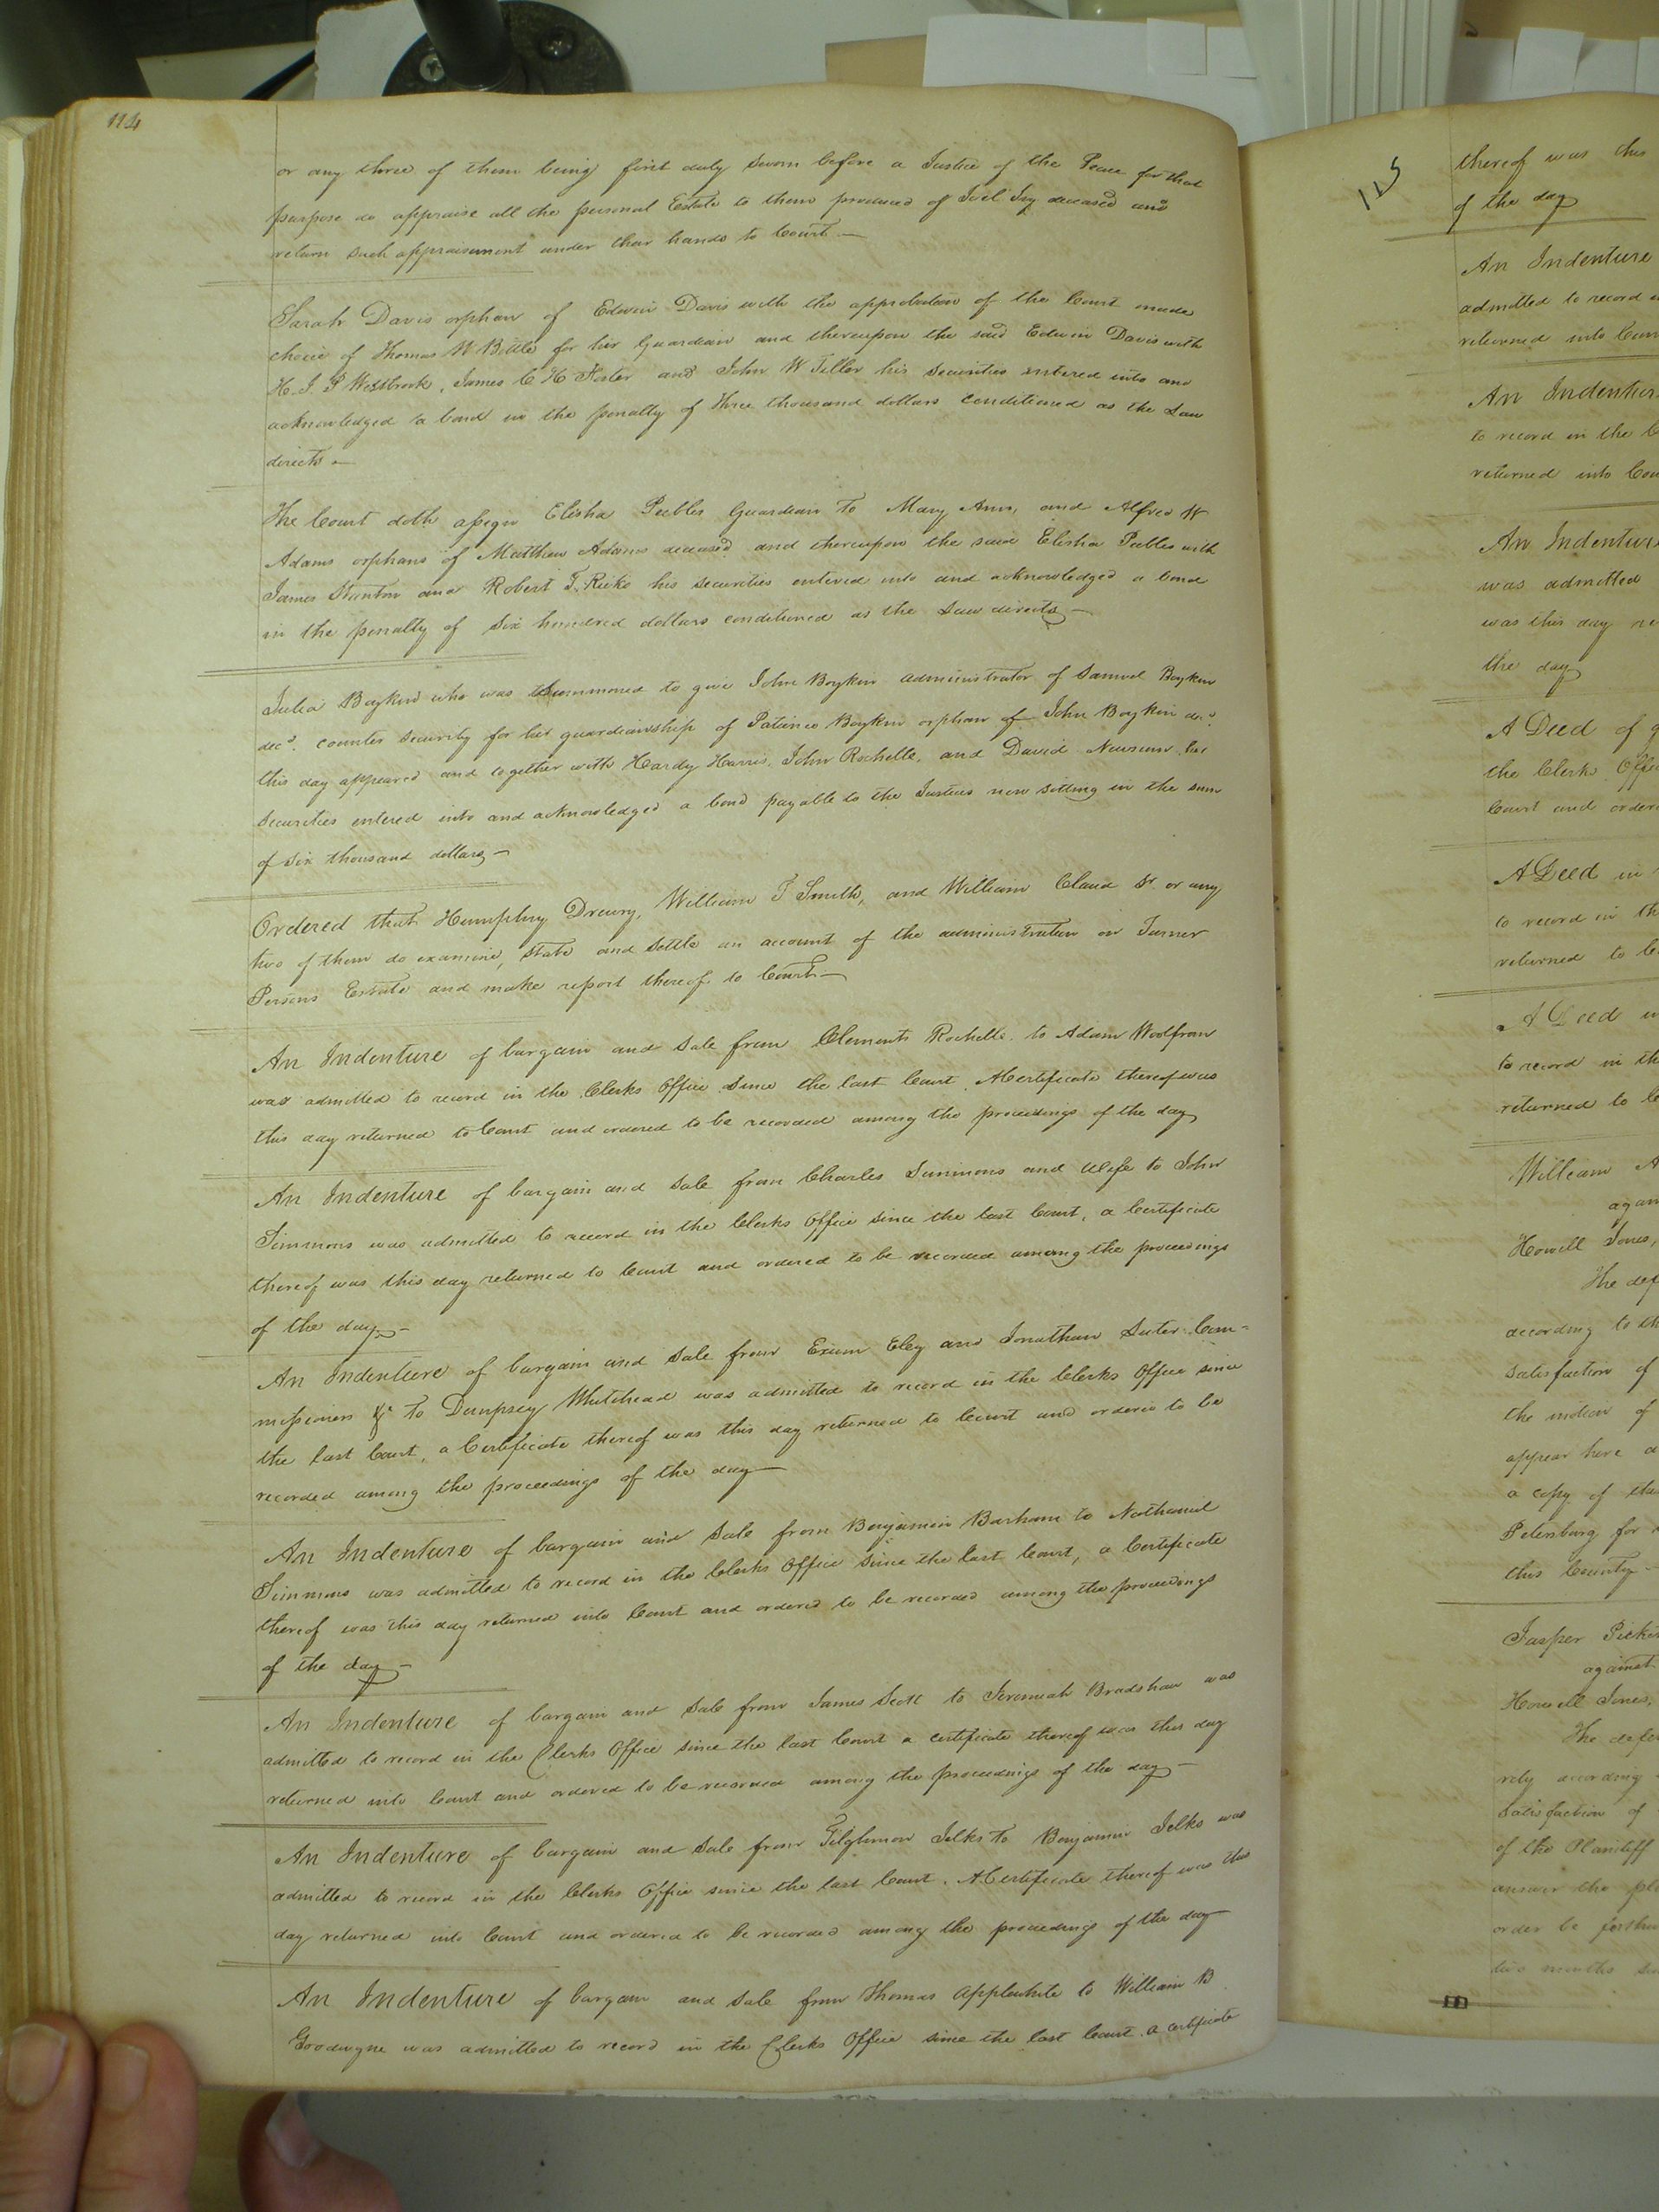 114
or any three of them being first duly sworn before a Justice of the Peace for that
purpose do appraise all the personal Estate to them produced of Joel Ivy deceased and
return such appraisement under their hands to Court —
Sarah Davis orphan of Edwin Davis with the approbation of the Court made
choice of Thomas W Bettle for her Guardian and thereupon the said Edwin Davis with
H. J. P Westbrook, James C H Foster and John W Tiller his securities entered into and
acknowledged a bond in the penalty of three thousand dollars conditioned as the Law
directs —
The Court doth assign Elisha Peebles Guardian to Mary Ann, and Alfred W
Adams orphans of Matthew Adams deceased and thereupon the said Elisha Peebles with
James Stanton and Robert T. Ricks his securities entered into and acknowledged a bond
in the penalty of Six hundred dollars conditioned as the Law directs —
Julia Boykin who was summoned to give John Boykin administrator of Samuel Boykin
decd. counter security for her guardianship of Patience Boykin orphan of John Boykin decd.
this day appeared and together with Hardy Harris, John Rochelle, and David Newsum her
Securities entered into and acknowledged a bond payable to the Justices now sitting in the sum
of six thousand dollars —
Ordered that Humphry Drewry, William T Smith, and William Claud Sr. or any
two of them do examine, state and settle an account of the administration on Turner
Persons Estate and make report thereof to Court —
An Indenture of bargain and Sale from Clements Rochelle to Adam Woolfran
was admitted to record in the Clerks Office since the last Court, A Certificate thereof was
this day returned to Court and ordered to be recorded among the proceedings of the day
An Indenture of bargain and sale from Charles Simmons and Wife to John
Simmons was admitted to record in the Clerks Office since the last Court, a Certificate
thereof was this day returned to Court and ordered to be recorded among the proceedings
of the day —
An Indenture of bargain and Sale from Exum Eley and Jonathan Suter Com=
missioners &c to Dempsey Whitehead was admitted to record in the Clerks Office since
the last Court, a Certificate thereof was this day returned to Court and ordered to be
recorded among the proceedings of the day —
An Indenture of bargain and Sale from Benjamin Barham to Nathaniel
Simmons was admitted to record in the Clerks Office since the last Court, a Certificate
thereof was this day returned into Court and ordered to be recorded among the proceedings
of the day —
An Indenture of bargain and Sale from James Scott to Jeremiah Bradshaw was
admitted to record in the Clerks Office since the last Court a certificate thereof was this day
returned into Court and ordered to be recorded among the proceedings of the day —
An Indenture of bargain and Sale from Tilghman Jelks to Benjamin Jelks was
admitted to record in the Clerks Office since the last Court, A Certificate thereof was this
day returned into Court and ordered to be recorded among the proceedings of the day
An Indenture of bargain and Sale from Thomas Applewhite to William B
Goodwyne was admitted to record in the Clerks Office since the last Court, a certificate
115
thereof was this
of the day
An Indenture
admitted to record
returned into
An Indenture
to record in the
returned into
An Indenture
was admitted
was this day
the day
A Deed of
the Clerks Office
Court and
A Deed in
to record in the
returned to
A Deed
to record in the
returned to
William
against
Howell Jones,
The
according to
satisfaction of
the motion of
appear here
a copy of
Petersburg for
this County
Jasper
against
Howell Jones,
The
according
satisfaction of
of the Plaintiff
answer the
order be
two months